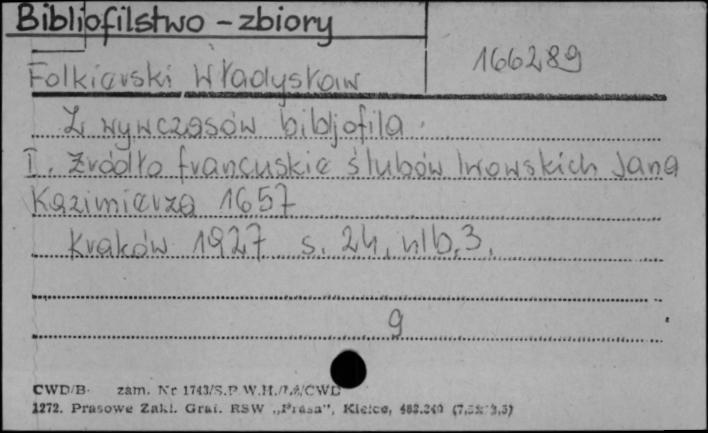 Bibljofilstwo - zbiory
166289
Folkierski Władysław
Z wywczasów bibljofila.
I. Źródło francuskie ślubów lwowskich Jana
Kazimierza 1657
Kraków 1927 s. 24, nlb. 3.
9
CWD/B. zam. Nr 1743/S.P.W.H./Ł/CWD
1272. Prasowe Zakł. Graf. RSW „Prasa", Kielce, 483.240 (7,5x12,5)